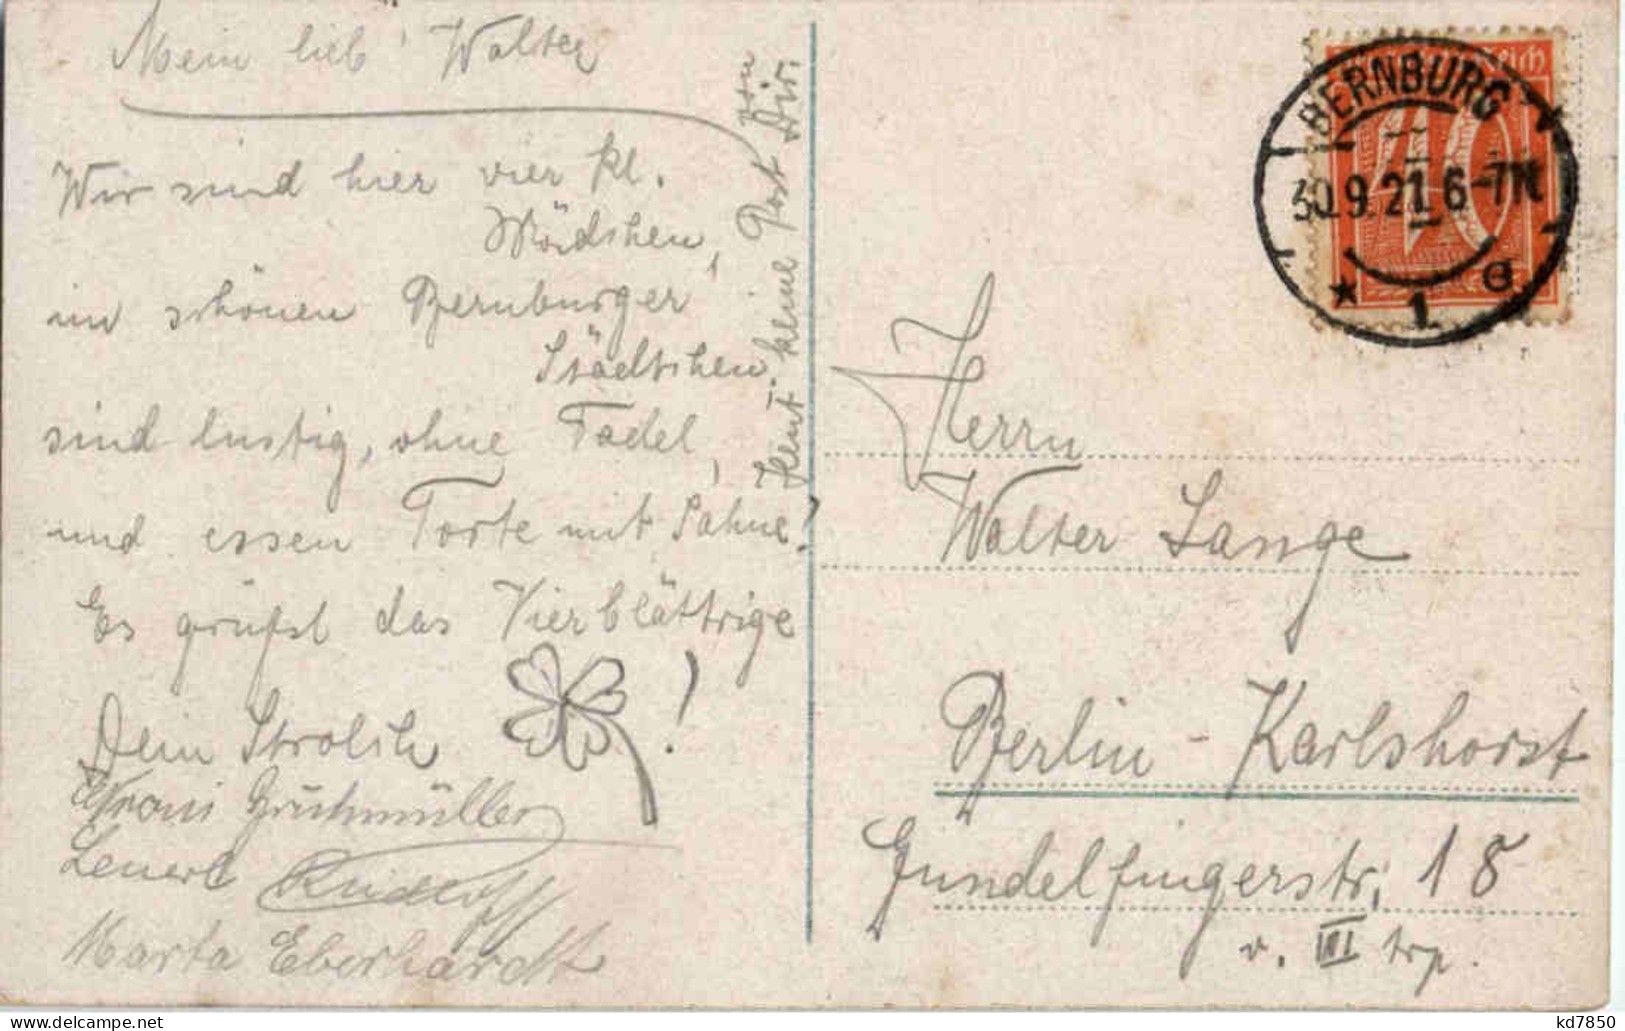 Mein lieb' Walter
Wir sind hier vier kl.
Mädchen,
im schönen Bernburger
Städtchen,
sind lustig, ohne Tadel,
und essen Torte mit Sahne!
Es grüßt das Vierblättrige
!
Dein Strolch
Grühmüller
Lenerl Rudloff
Marta Eberhardt
Heut' keine Post von
Dir.
Reich
40
BERNBURG
30.9.21 6-7N
* 1 a
Herrn
Walter Lange
Berlin-Karlshorst
Gundelfingerstr. 18
v. III trp.
kd7850